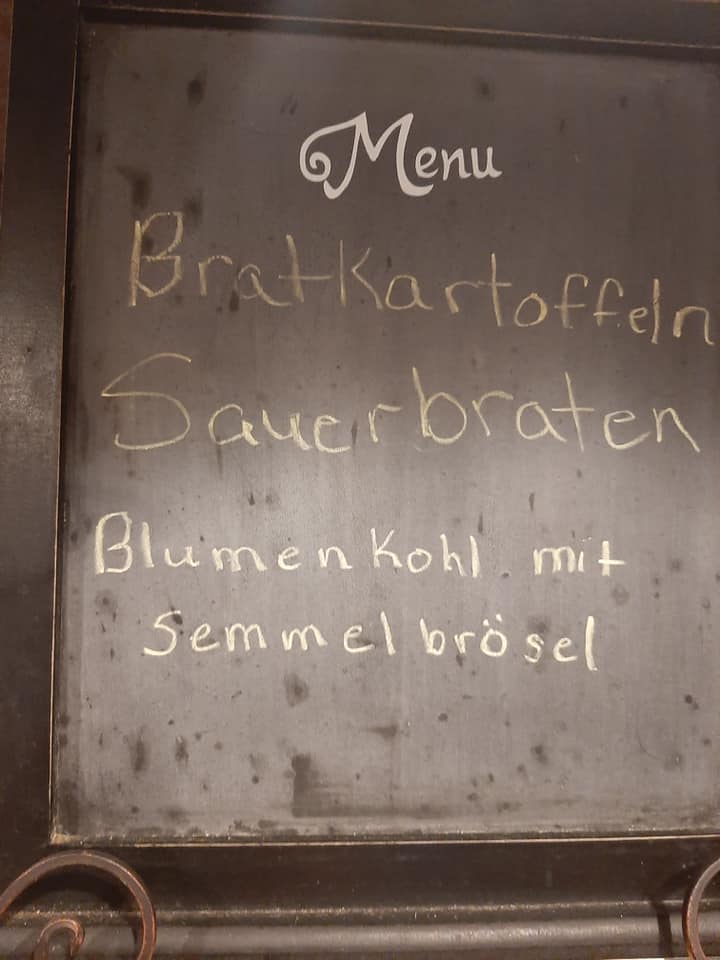 Menu
Bratkartoffeln
Sauerbraten
Blumenkohl mit
Semmelbrösel